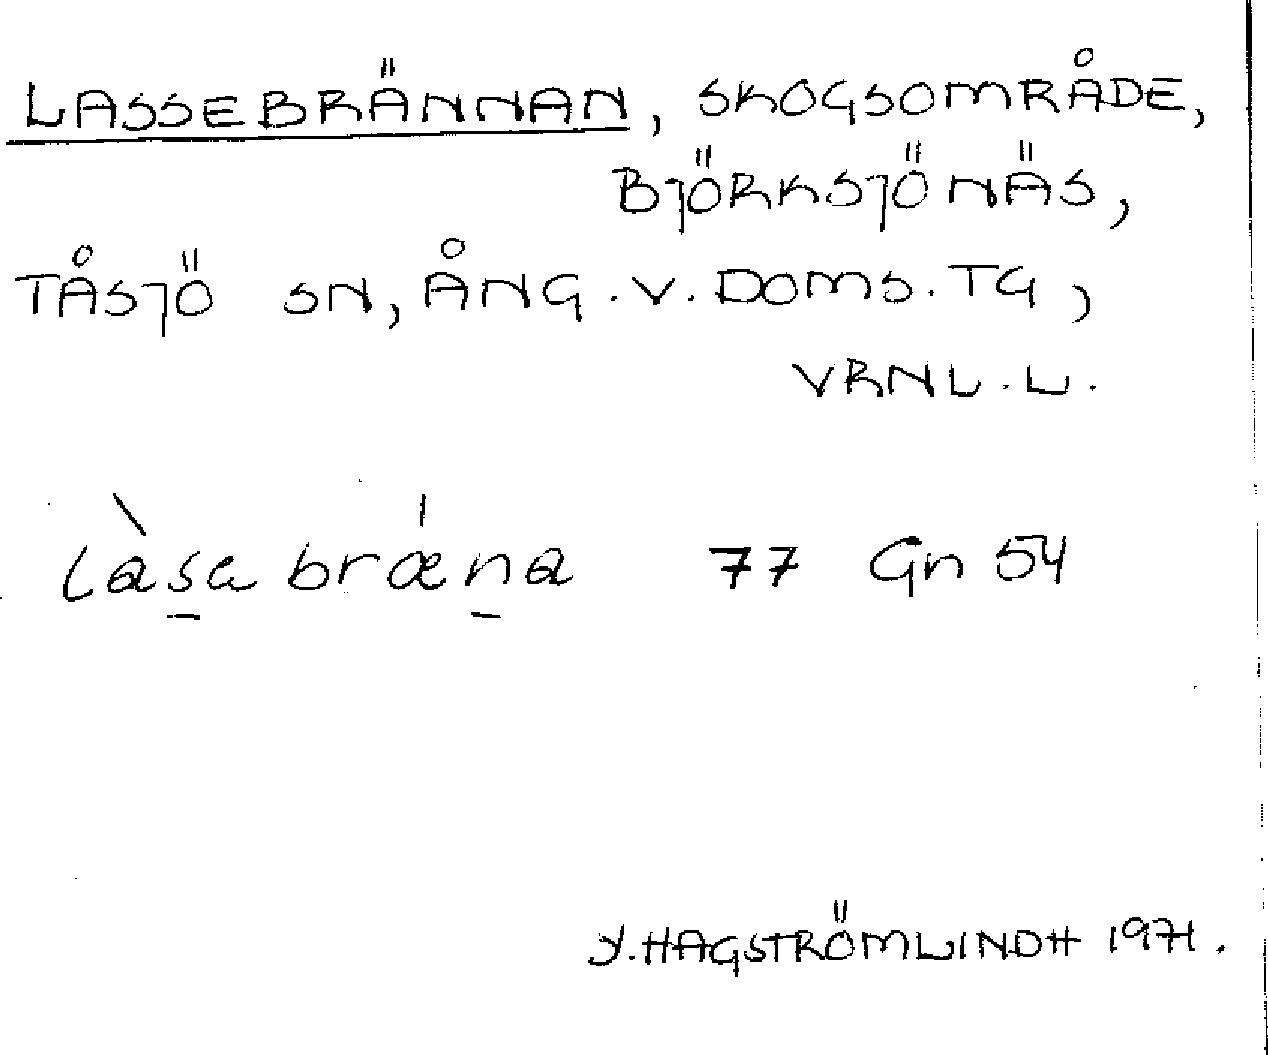 LASSEBRÄNNAN, SKOGSOMRÅDE,
BJÖRKSJÖNÄS,
TÅSJÖ SN, ÅNG. V. DOMS. TG,
VRNL. L.
làsa bræ̍na 77 Gn 54
Y. HAGSTRÖMLINDH 1971.